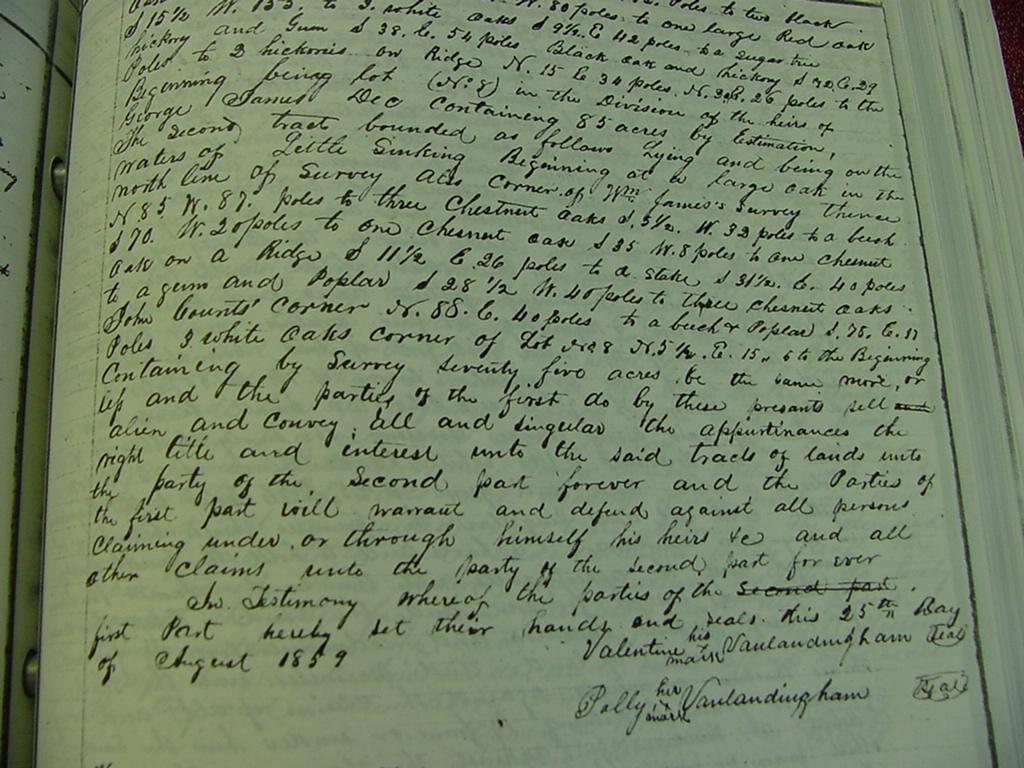 Poles to two black
S 15½ W. 153. to 3 white oaks W. 80 poles to one large Red oak
hickory and Gum S 38. E. 54 poles S 9½ E 42 poles to a sugar tree
Poles to 2 hickories on Ridge N. 15 E 34 poles Black oak and hickory S 72 E. 29
Beginning being lot (No 8) in the Division of the heirs of N. 30 E. 26 poles to the
George James Dec Containing 85 acres by Estimation,
The Second tract bounded as follows Lying and being on the
waters of Little Sinking Beginning at a large oak in the
north line of Survey corner of Wm James's Survey thence
N 85 W. 87. poles to three Chestnut oaks S. 5½. W. 32 poles to a beech
S 70. W. 20 poles to one Chesnut oak S 35 W. 8 poles to one Chesnut
oak on a Ridge S 11½ E. 26 poles to a stake S 31½. E. 40 poles
to a gum and Poplar S 28 ½ W. 40 poles to three Chesnut oaks.
John Counts' corner N. 88. E. 40 poles to a beech & Poplar S. 75. E. 57
Poles 3 white oaks corner of Lot No 8 N. 5½. E. 15 to the Beginning
Containing by Survey seventy five acres be the same more, or
less and the parties of the first do by these presants sell and
alien and convey, all and singular the appurtinances the
right title and interest unto the said tracts of lands unto
the party of the Second part forever and the Parties of
the first part will warrant and defend against all persons
claiming under or through himself his heirs &c and all
other claims unto the party of the second part for ever
In Testimony whereof the parties of the Second part
first Part hereby set their hands and seals this 25th Day
of August 1859 Valentine his mark Vanlandingham Seal
Polly her mark Vanlandingham Seal